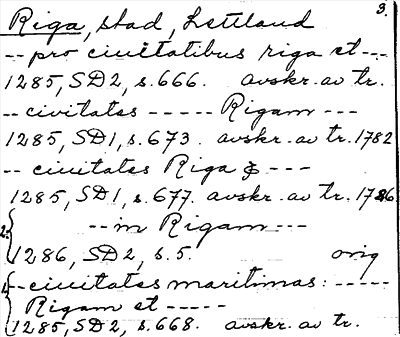 3.
Riga, stad, Lettland
-- pro ciuitatibus riga et ---
1285, SD2, s. 666. avskr. av tr.
-- civitates ----- Rigam ---
1285, SD1, s. 673. avskr. av tr. 1782
-- ciuitates Riga ---
1285, SD1, s. 677. avskr. av tr.
2. -- in Rigam ---
1286, SD2, s. 5. orig
1. -- ciuitates maritimas: -----
Rigam et -----
1285, SD2, s. 668. avskr. av tr.